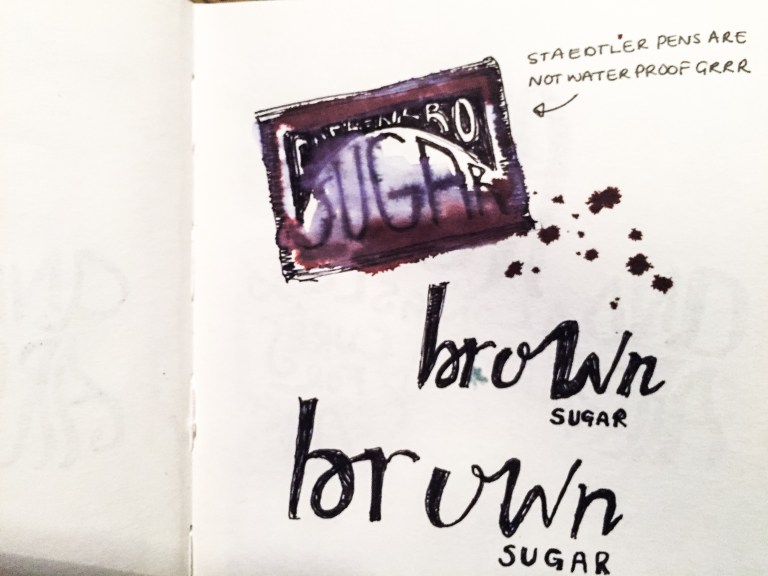 STAEDTLER PENS ARE
NOT WATERPROOF GRRR
SUGAR
brown
SUGAR
brown
SUGAR